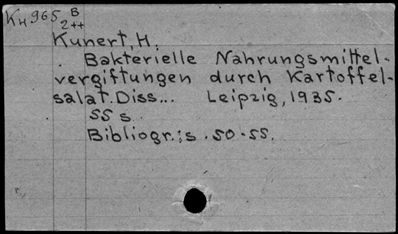 KH965 B
2++
Kunert, H.
Bakterielle Nahrungsmittel-
vergiftungen durch Kartoffel-
salat. Diss... Leipzig, 1935.
55 s.
Bibliogr.: s. 50-55.